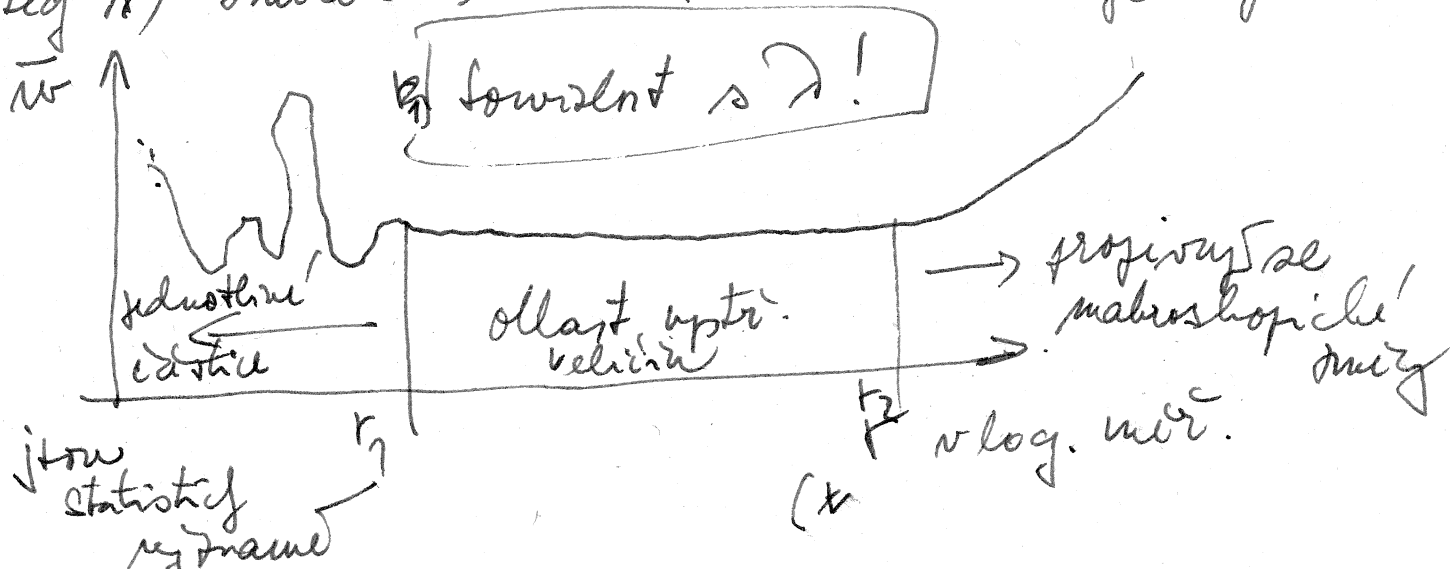 w̄
souvislost s λ!
jednotlivé
částice
oblast vystř.
veličin
projevují se
makroskopické
změny
r₁
r₂
r v log. měř.
jsou
statisticky
významné
(x